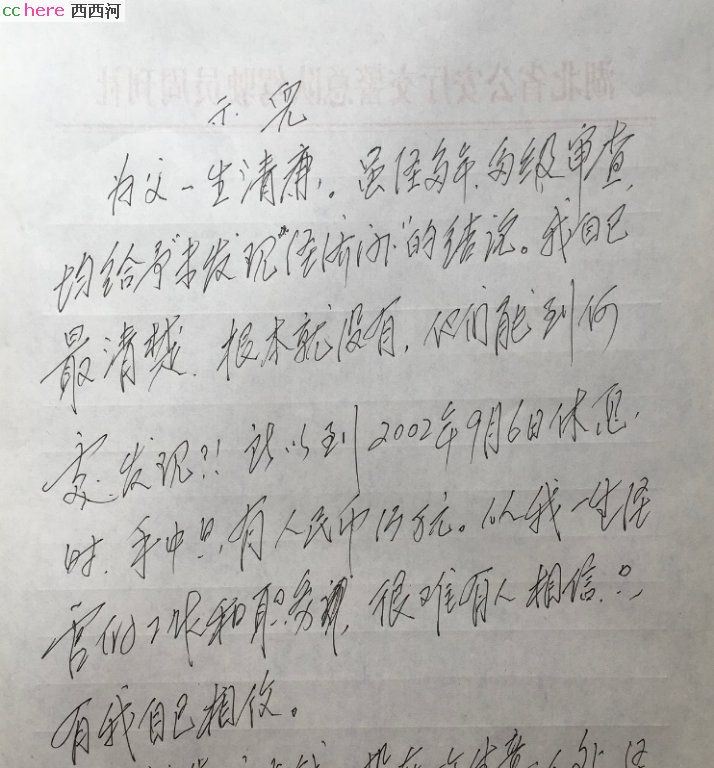 cchere 西西河
湖北省公安厅交警总队驾驶员周刊社
示儿
为父一生清廉。虽经多年、多级审查，
均给予"未发现"经济"的结论。我自己
最清楚，根本就没有，他们能到何
处发现?! 所以到2002年9月6日休息
时，手中只有人民币15万元。从我一生经
营的工作和职务讲，很难有人相信，只
有我自己相信。